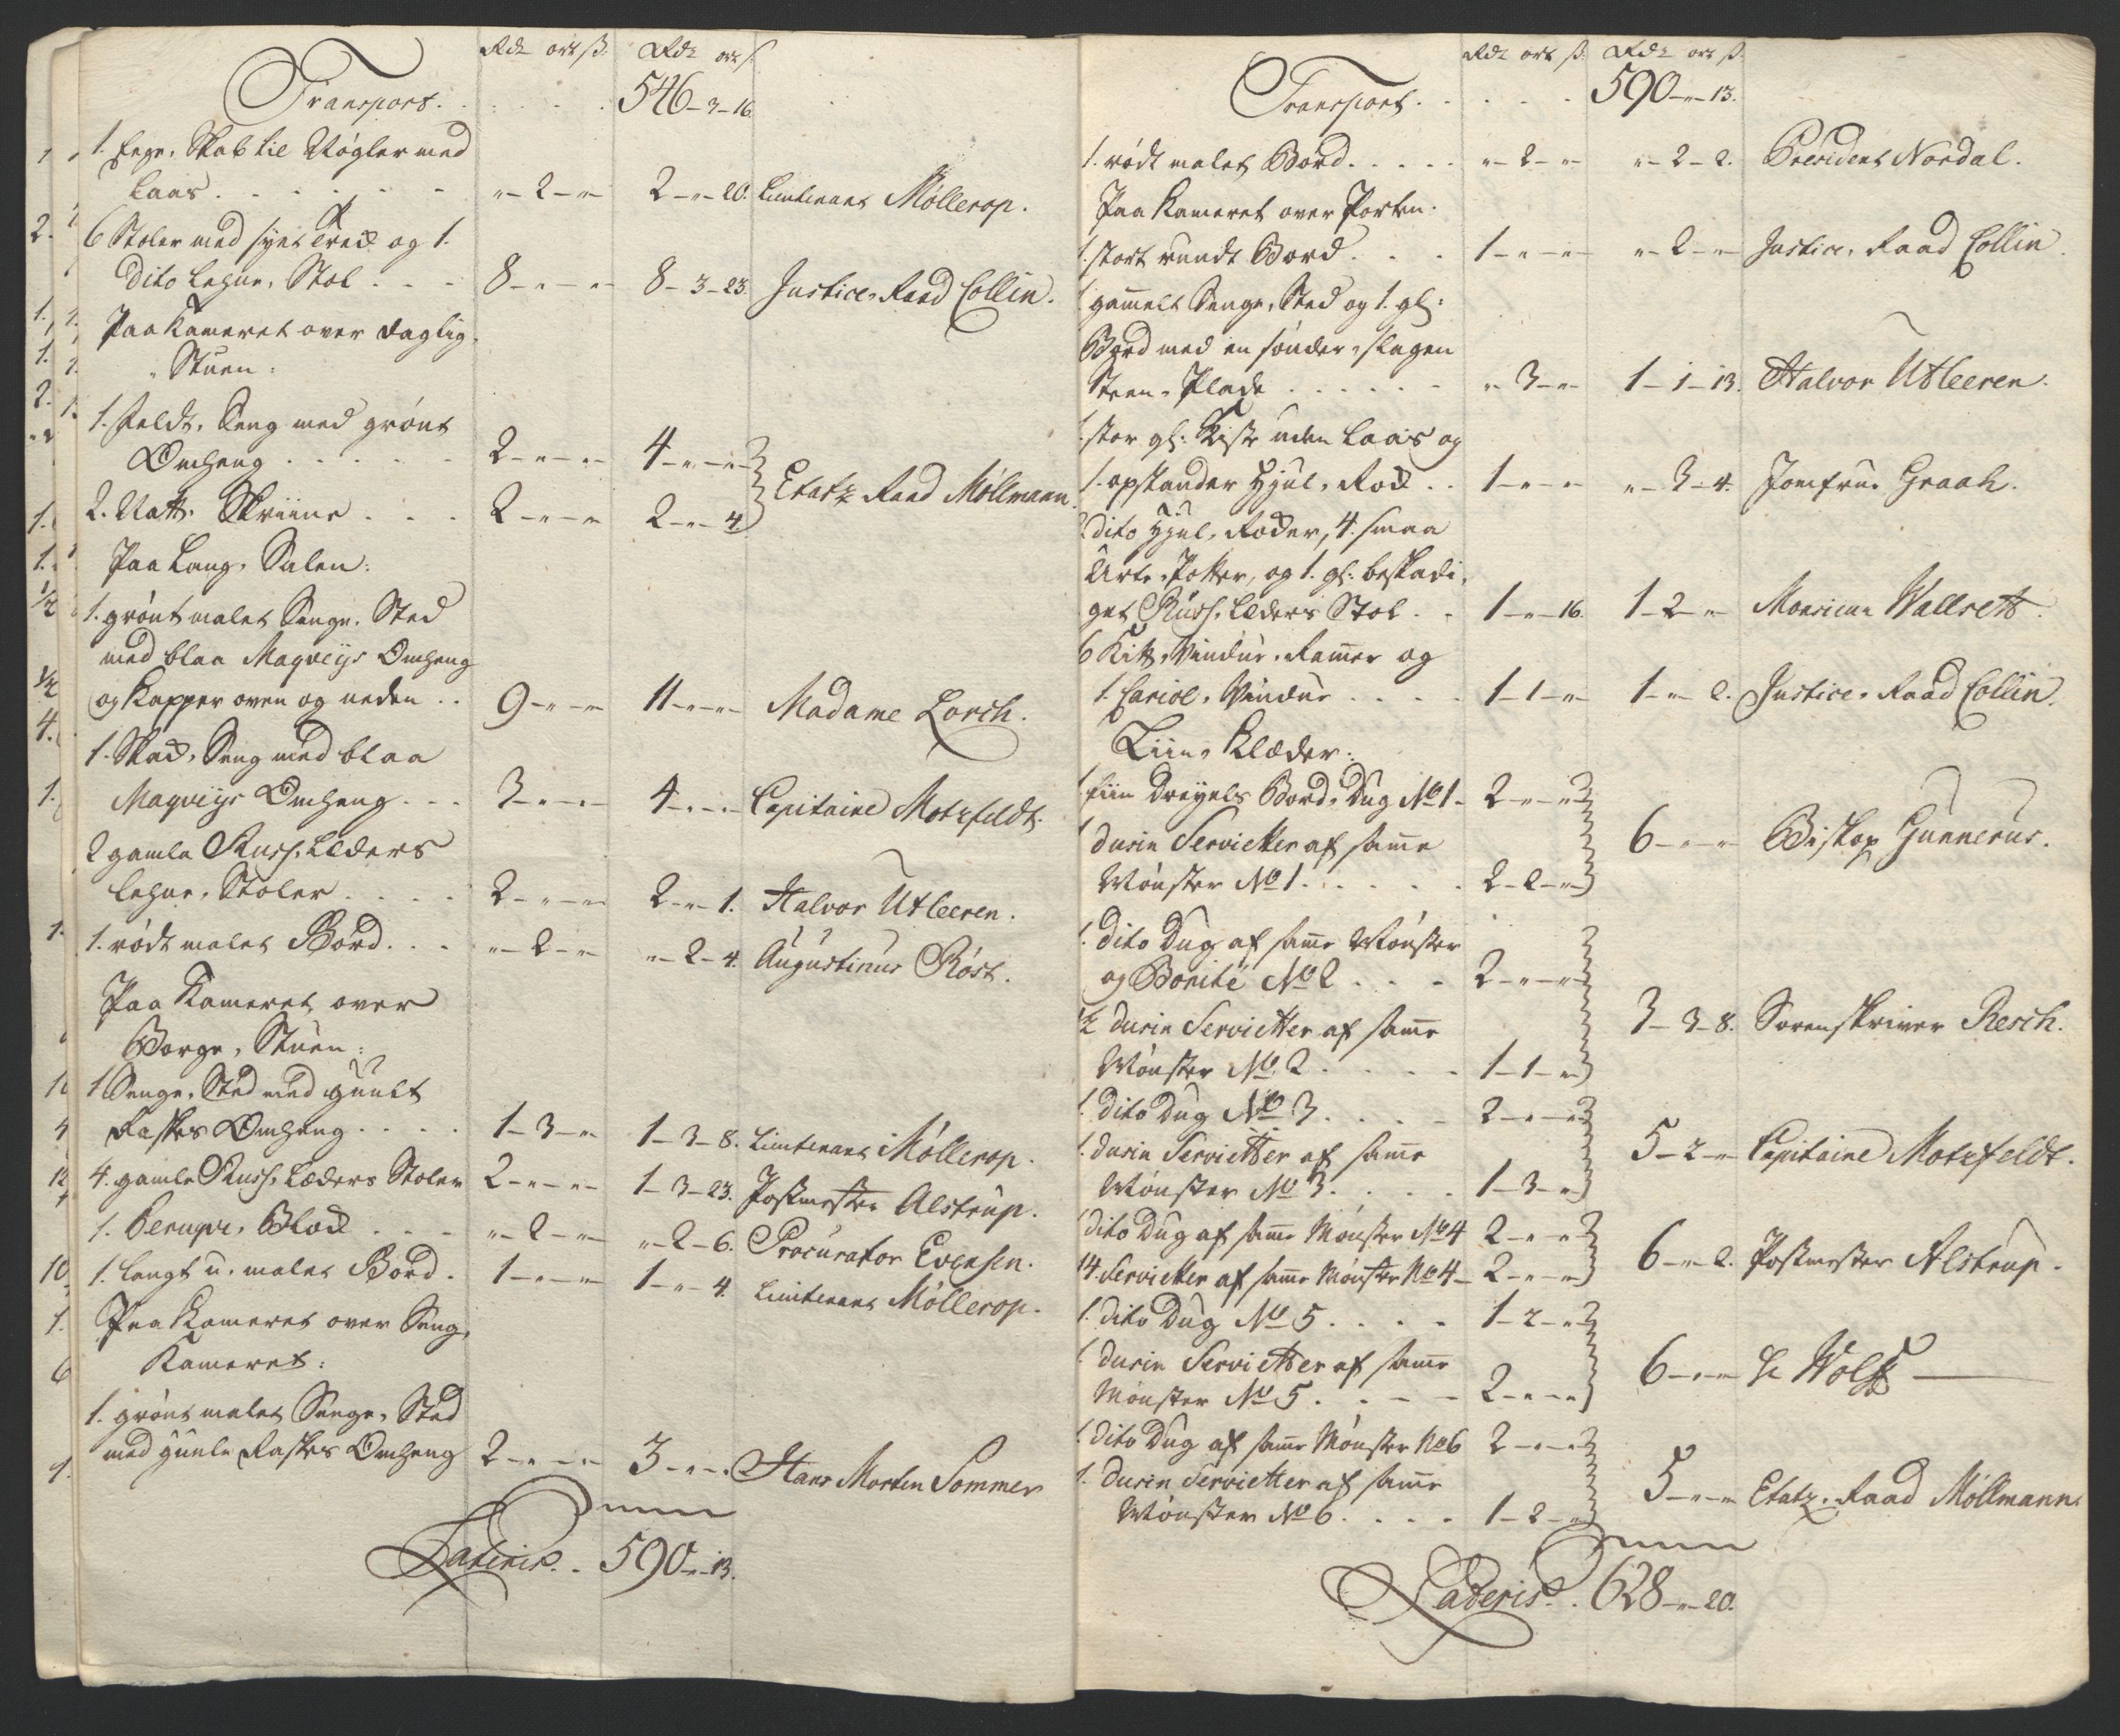 Rdr ort ß. Rdr ort ß.
Transport . . . . . 546-3-16.
1. Ege-Skab til Nøgler med
Laas . . . . . . "-2-" 2-"-20. Lieutenant Møllerop.
6 Stoler med syet Træk og 1.
dito Lehne-Stol . . . 8-"-" 8-3-23. Justice-Raad Collin.
Paa Kameret over Daglig-
Stuen:
1. Feldt-Seng med grønt
Omheng . . . . . 2-"-" 4-"-"
2. Natt-Skriine . . . 2-"-" 2-"-4. Etatz Raad Möllmann.
Paa Lang-Salen:
1. grønt malet Senge-Sted
med blaa Maqveijs Omheng
og Kapper oven og neden . . 9-"-" 11-"-" Madame Lorch.
1. Skab-Seng med blaa
Maqveijs Omheng . . . 3-"-" 4-"-" Capitaine Motzfeldt.
2 gamle Russ-Læders
Lehne-Stoler . . . . 2-"-" 2-"-1. Halvor Utleeren.
1. rødt malet Bord . . . "-2-" "-2-4. Augustinus Røst.
Paa Kameret over
Borge-Stuen:
1 Senge-Sted med guult
Raskes Omheng . . . . 1-3-" 1-3-8. Lieutenant Møllerop.
4. gamle Russ-Læders Stoler 2-"-" 1-3-23. Postmester Alstrup.
1. Peruqve-Blok . . . "-2-" "-2-6. Procurator Evensen.
1. langt u-malet Bord . 1-"-" 1-"-4. Lieutenant Møllerop.
Paa Kameret over Seng-
Kameret:
1. grønt malet Senge-Sted
med guule Raskes Omheng 2-"-" 3-"-" Hans Morten Sommer
Lateris . . 590-"-13.
Rdr ort ß. Rdr ort ß.
Transport . . . . . 590-"-13.
1. rødt malet Bord . . . . . "-2-" "-2-2. President Nordal.
Paa Kameret over Porten.
1. stort rundt Bord . . . 1-"-" "-2-" Justice-Raad Collin.
1 gammelt Senge-Sted og 1. gl:
Bord med en sønder-slagen
Steen-Plade . . . . . . "-3-" 1-1-13. Halvor Utleeren.
1. stor gl: Kiste uden Laas og
1. opstander Hjul-Rok . . 1-"-" "-3-4. Jomfrue Graah.
2 dito Hjul-Rokker, 4. smaa
Urte-Potter, og 1. gl: beskadi-
get Russ-Læders Stol . . 1-"-16. 1-2-" Monsieur Wallseth.
6 Kitt-Vindue-Rammer og
1. Cariol-Vindue . . . . 1-1-" 1-"-2. Justice-Raad Collin.
Liin-Klæder:
1 fiin Dreyels Bord-Dug No 1- 2-"-"
1 dusin Servietter af samme 6-"-" Biskop Gunnerus.
Mønster No 1. . . . . . 2-2-"
1. dito Dug af samme Mønster
og Bonité No 2 . . . 2-"-"
½ dusin Servietter af samme 3-3-8. Sorenskriver Resch.
Mønster No. 2 . . . . . 1-1-"
1. dito Dug No 3 . . . . 2-"-"
1. dusin Servietter af samme 5-2-" Capitaine Motzfeldt.
Mønster No 3. . . . . 1-3-"
1 dito Dug af samme Mønster No 4 2-"-"
14. Servietter af samme Mønster No 4- 2-"-" 6-"-2. Postmester Alstrup.
1. dito Dug No 5 . . . . 1-2-"
1. dusin Servietter af samme 6-"-" Hr Wolff
Mønster No 5 . . - - 2-"-"
1. dito Dug af samme Mønster No 6 2-"-"
1. dusin Servietter af samme 5-"-" Etatz-Raad Möllmann.
Mønster No 6 . . . . 1-2-"
Lateris . . 628-"-20.